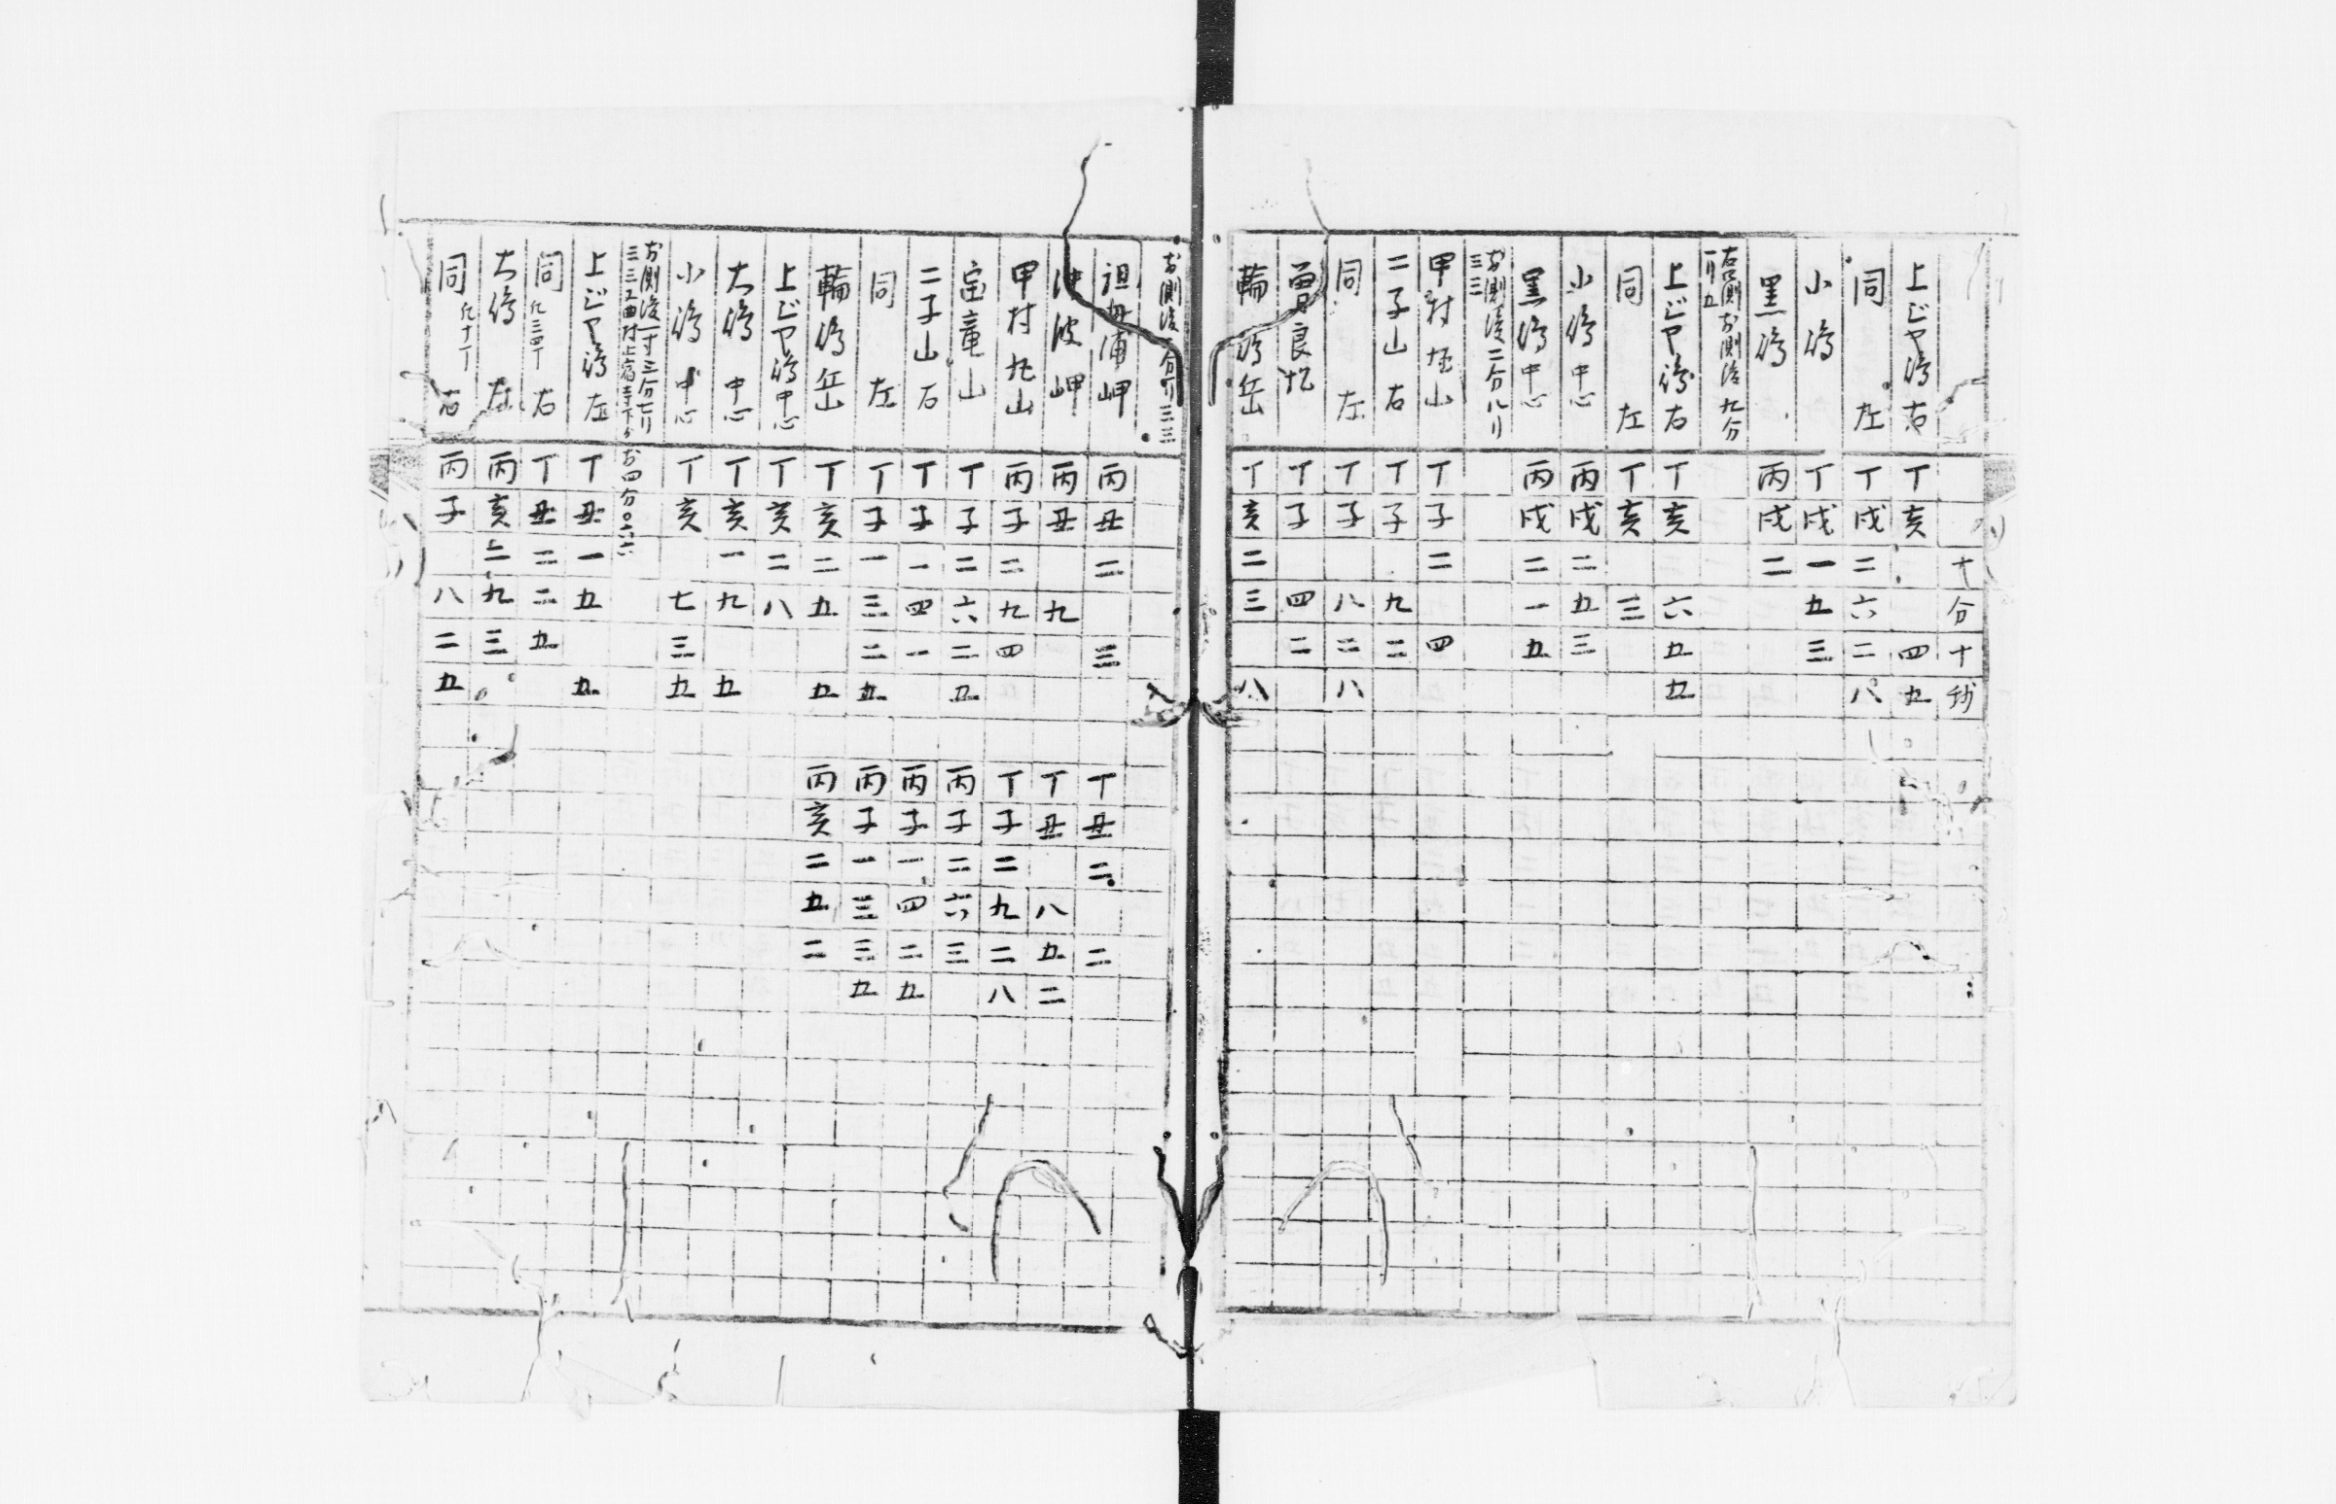 十分十秒
上ジヤ淆右 丁亥 四五
同 左 丁戌二六二八
小淆 丁戌一五三
黒淆 丙戌二
右側お側後九分
一リ五
上ジヤ淆右 丁亥 六五五
同 左 丁亥 三
小淆中心 丙戌二五三
黒淆中心 丙戌二一五
お側後二分八リ
三三
甲村 山 丁子二 四
二子山右 丁子 九二
同 左 丁子 八二八
曽良 丁子 四二
輪淆岳 丁亥二三 八
お側後 分 リ三三
祖母浦岬 丙丑二 三 丁丑二 二
波岬 丙丑 九 丁丑 八五二
甲村 山 丙子二九四 丁子二九二八
宝竜山 丁子二六二五 丙子二六三
二子山右 丁子一四一 丙子一四二五
同 左 丁子一三二五 丙子一三三五
輪淆岳 丁亥二五 五 丙亥二五二
上ジヤ淆中心 丁亥二八
大淆中心 丁亥一九 五
小淆中心 丁亥 七三五
お側後一寸三分七リ
三三
上ジヤ淆左 丁丑一五 五
同 九三 右 丁丑二二五
大淆 左 丙亥二九三
同 九十 右 丙子 八二五